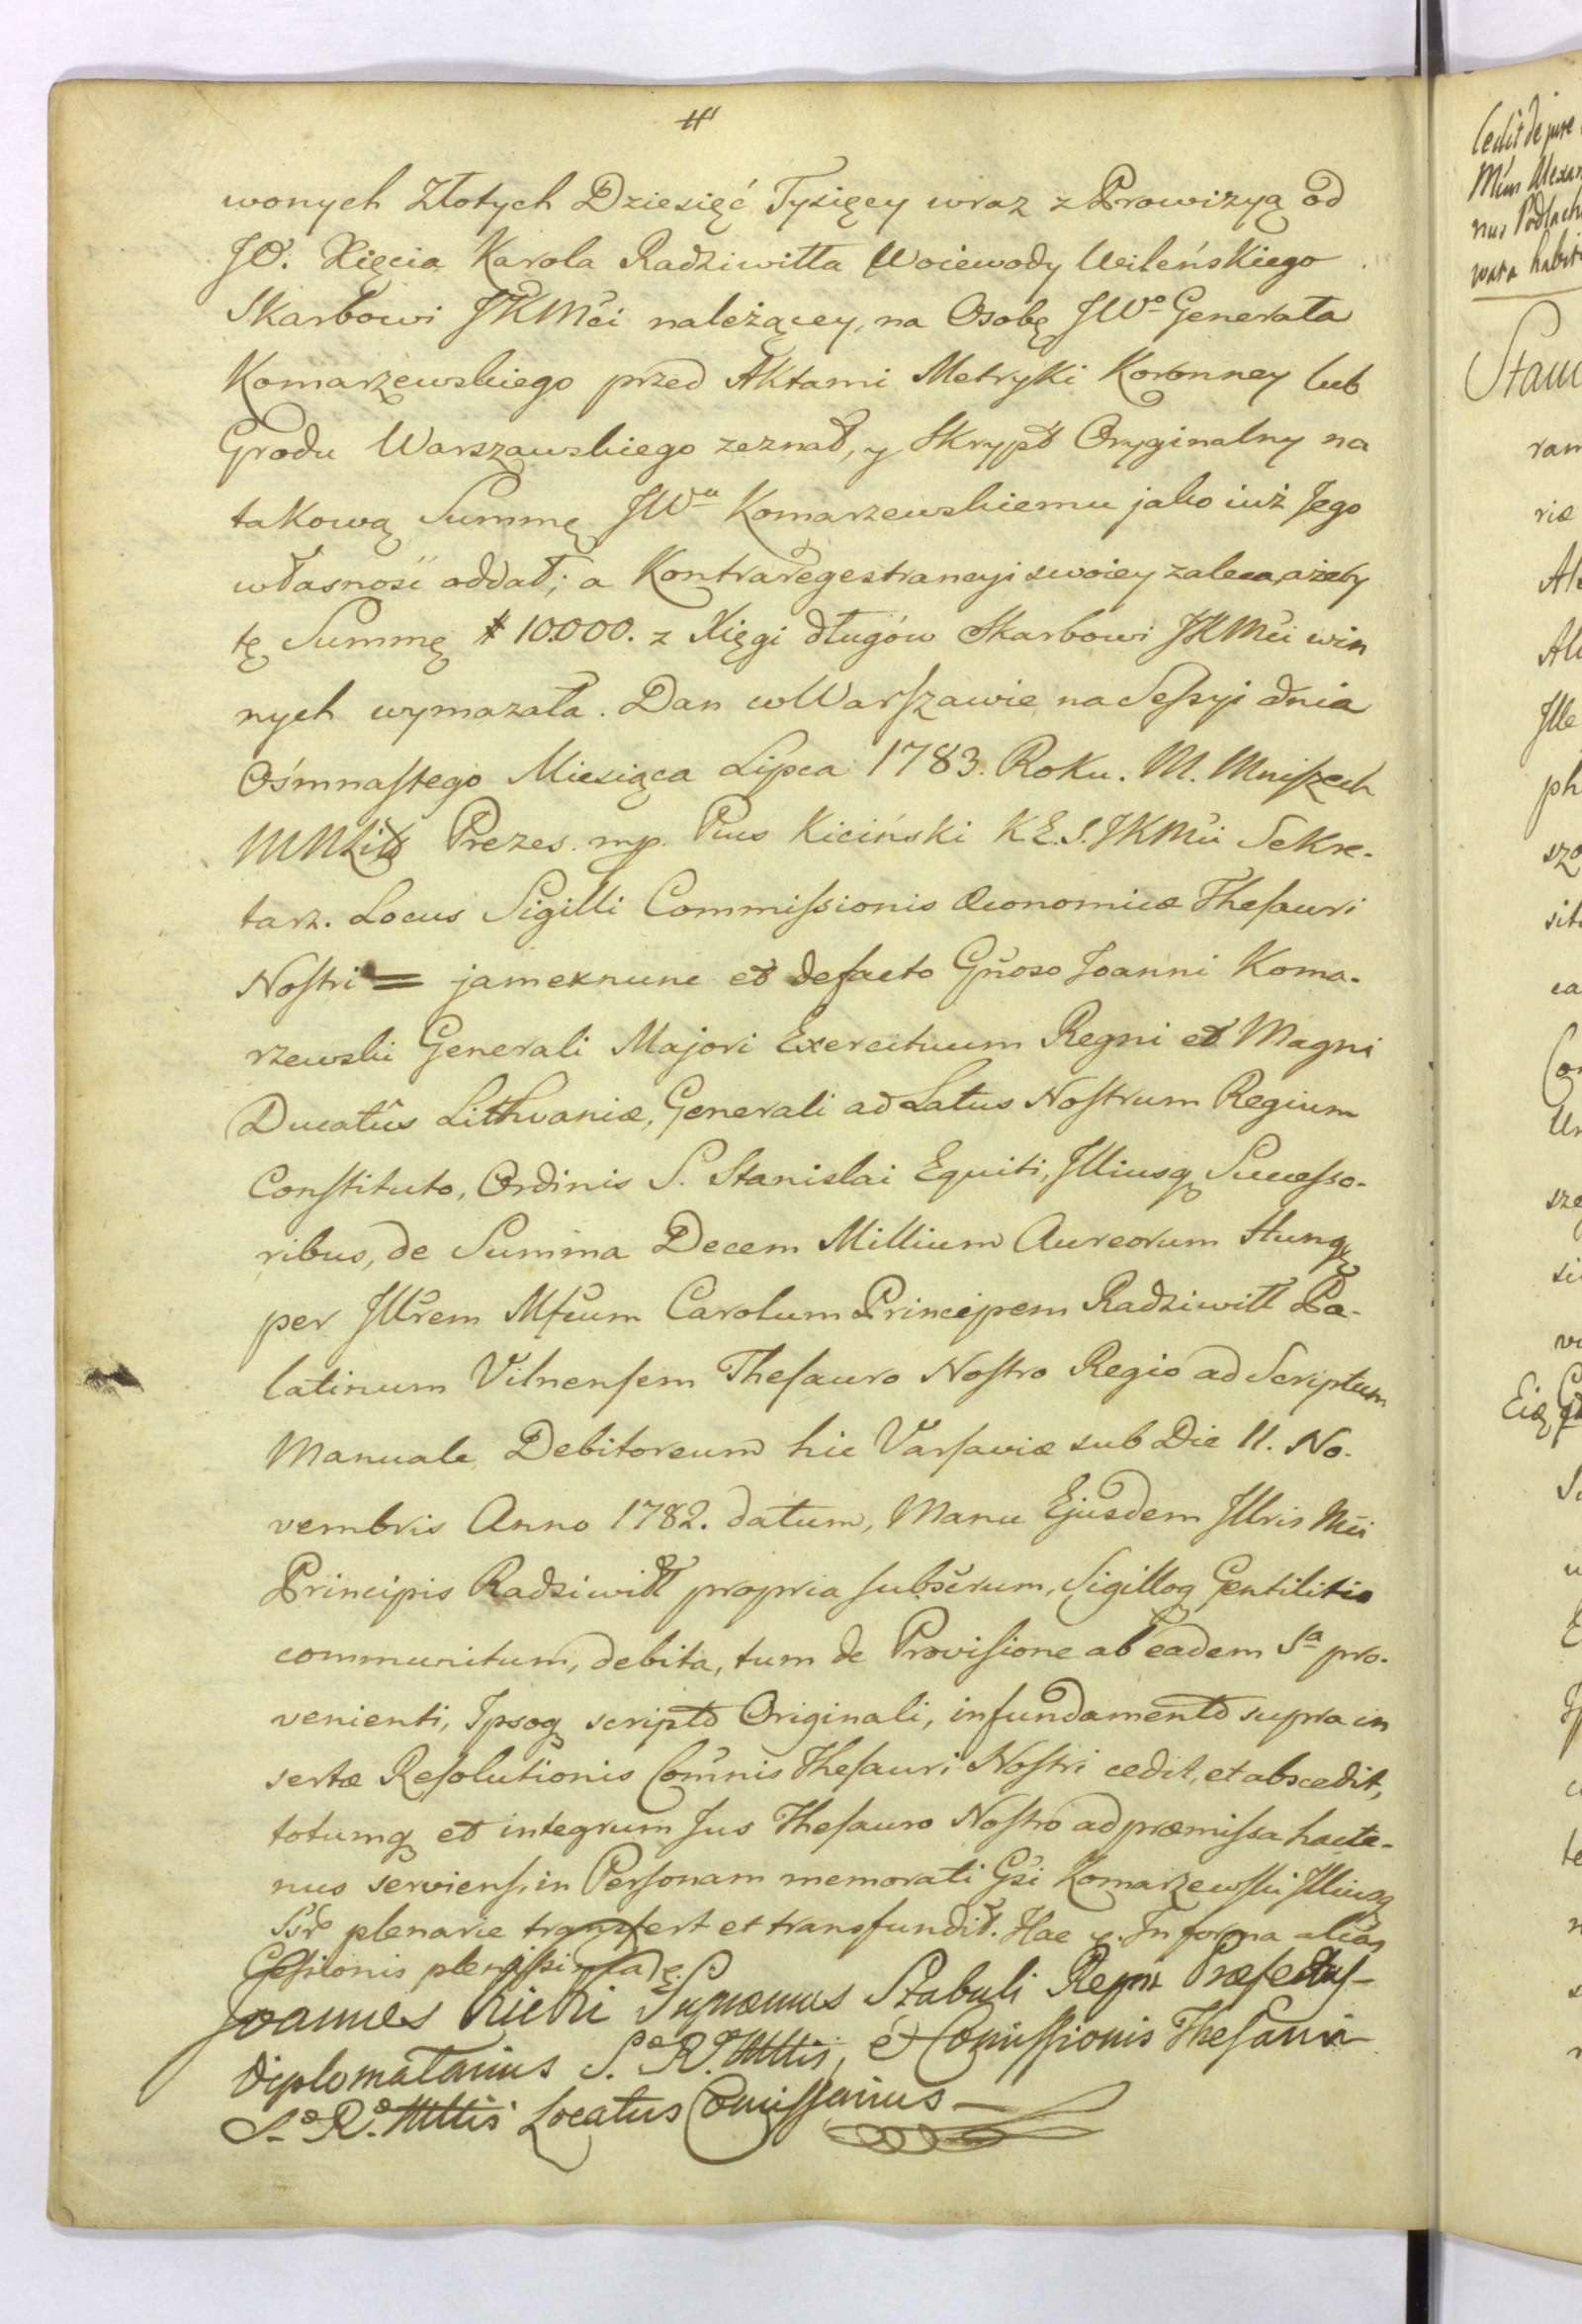 wonych Złotych Dziesięć Tysięcy wraz z Prowizyą od
JO. Xięcia Karola Radziwiłła Woiewody Wileńskiego
Skarbowi JKMći należącey, na Osobę JWº Generała
Komarzewskiego przed Aktami Metryki Koronney lub
Grodu Warszawskiego zeznał, y Skrypt Oryginalny na
takową Summę JWu Komarzewskiemu jako iuż Jego
własność oddał; a Kontraregestrancyi swoiey zaleca, ażeby
tę Summę # 10.000. z Xięgi długów Skarbowi JKMći win
nych wymazała. Dan w Warszawie na Sessyi dnia
Ośmnastego Miesiąca Lipca 1783. Roku. M. Mniszech
MNLit Prezes. mp. Pius Kiciński K.E.S.JKMći Sekre-
tarz. Locus Sigilli Commissionis Œconomicæ Thesauri
Nostri = jamexnunc et defacto Gñoso Joanni Koma-
rzewski Generali Majori Exercituum Regni et Magni
Ducatûs Lithvaniæ, Generali ad Latus Nostrum Regium
Constituto, Ordinis S. Stanislai Equiti, Illiusq Successo-
ribus, de Summa Decem Millium Aureorum Hung
per Illrem Mfcum Carolum Principem Radziwiłł Pa-
latinum Vilnensem Thesauro Nostro Regio ad Scriptum
Manuale Debitoreum hic Varsaviæ sub Die 11. No-
vembris Anno 1782. datum, Manu Ejusdem Illris Mci
Principis Radziwiłł propria subscrum, Sigilloq Gentilitio
communitum, debita, tum de Provisione ab eadem Sa pro-
venienti, Ipsoq scripto Originali, in fundamento supra in
sertæ Resolutionis Comnis Thesauri Nostri cedit, et abscedit,
totumq et integrum Jus Thesauro Nostro ad præmissa hacte-
nus serviens, in Personam memorati Gsi Komarzewski Illiusq
Ssr plenarie transfert et transfundit. Hac . In forma
Cessionis plenissima
Joannes Kicki Supræmus Stabuli Regni Præfectus
Diplomatarius S. R. Mttis, et Comissionis Thesauri
S. R. Mttis Locatus Comissarius

Cedit de jure
Stani
ram
riæ
Ille
ph
szo
sit
ca
si